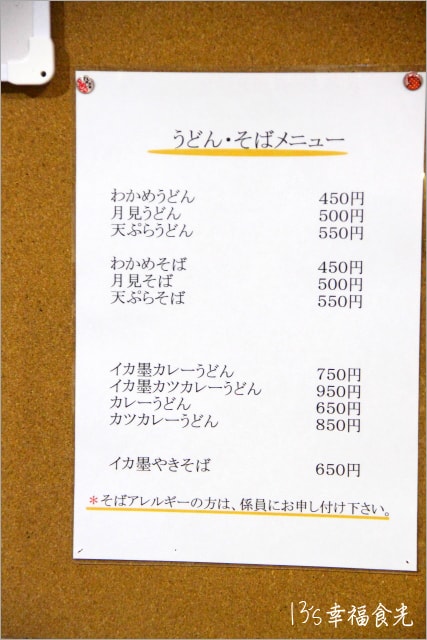 うどん・そばメニュー
わかめうどん 450円
月見うどん 500円
天ぷらうどん 550円
わかめそば 450円
月見そば 500円
天ぷらそば 550円
イカ墨カレーうどん 750円
イカ墨カツカレーうどん 950円
カレーうどん 650円
カツカレーうどん 850円
イカ墨やきそば 650円
*そばアレルギーの方は、係員にお申し付け下さい。
13's幸福食光